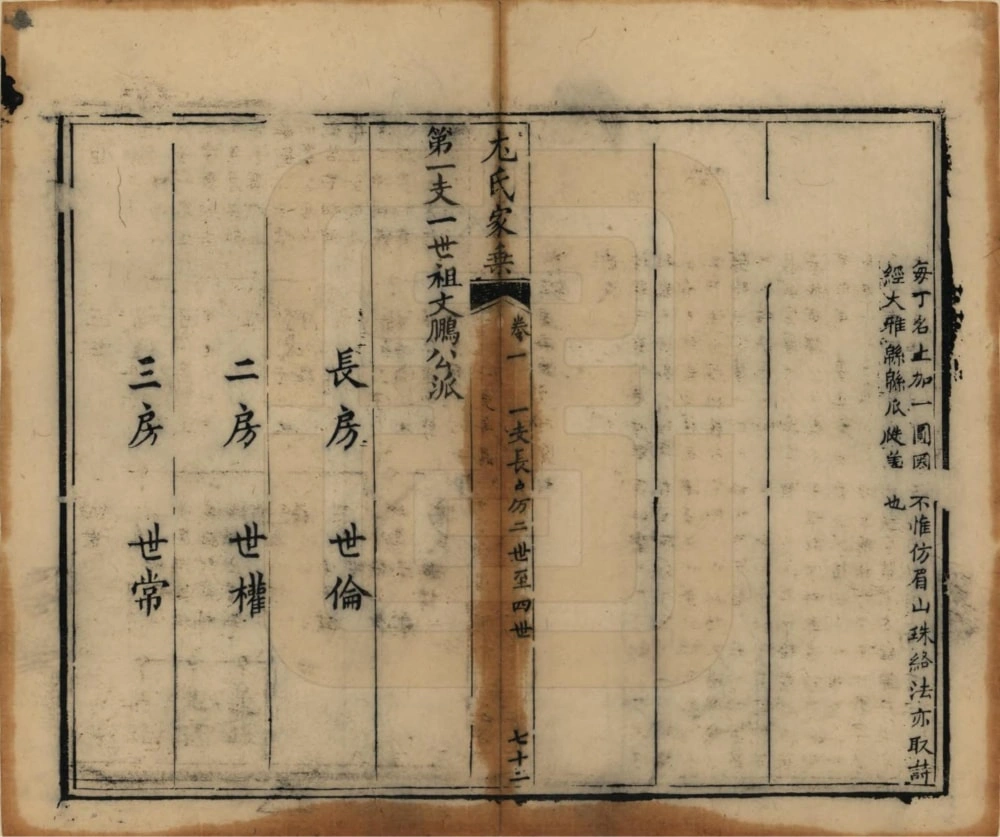 每丁名上加一圓圈不惟仿眉山珠絡法亦取詩
經大雅緜緜瓜瓞 也
尤氏家乘
卷一
一支長房二世至四世
七十二
第一支一世祖文鵬公派
長房 世倫
二房 世權
三房 世常